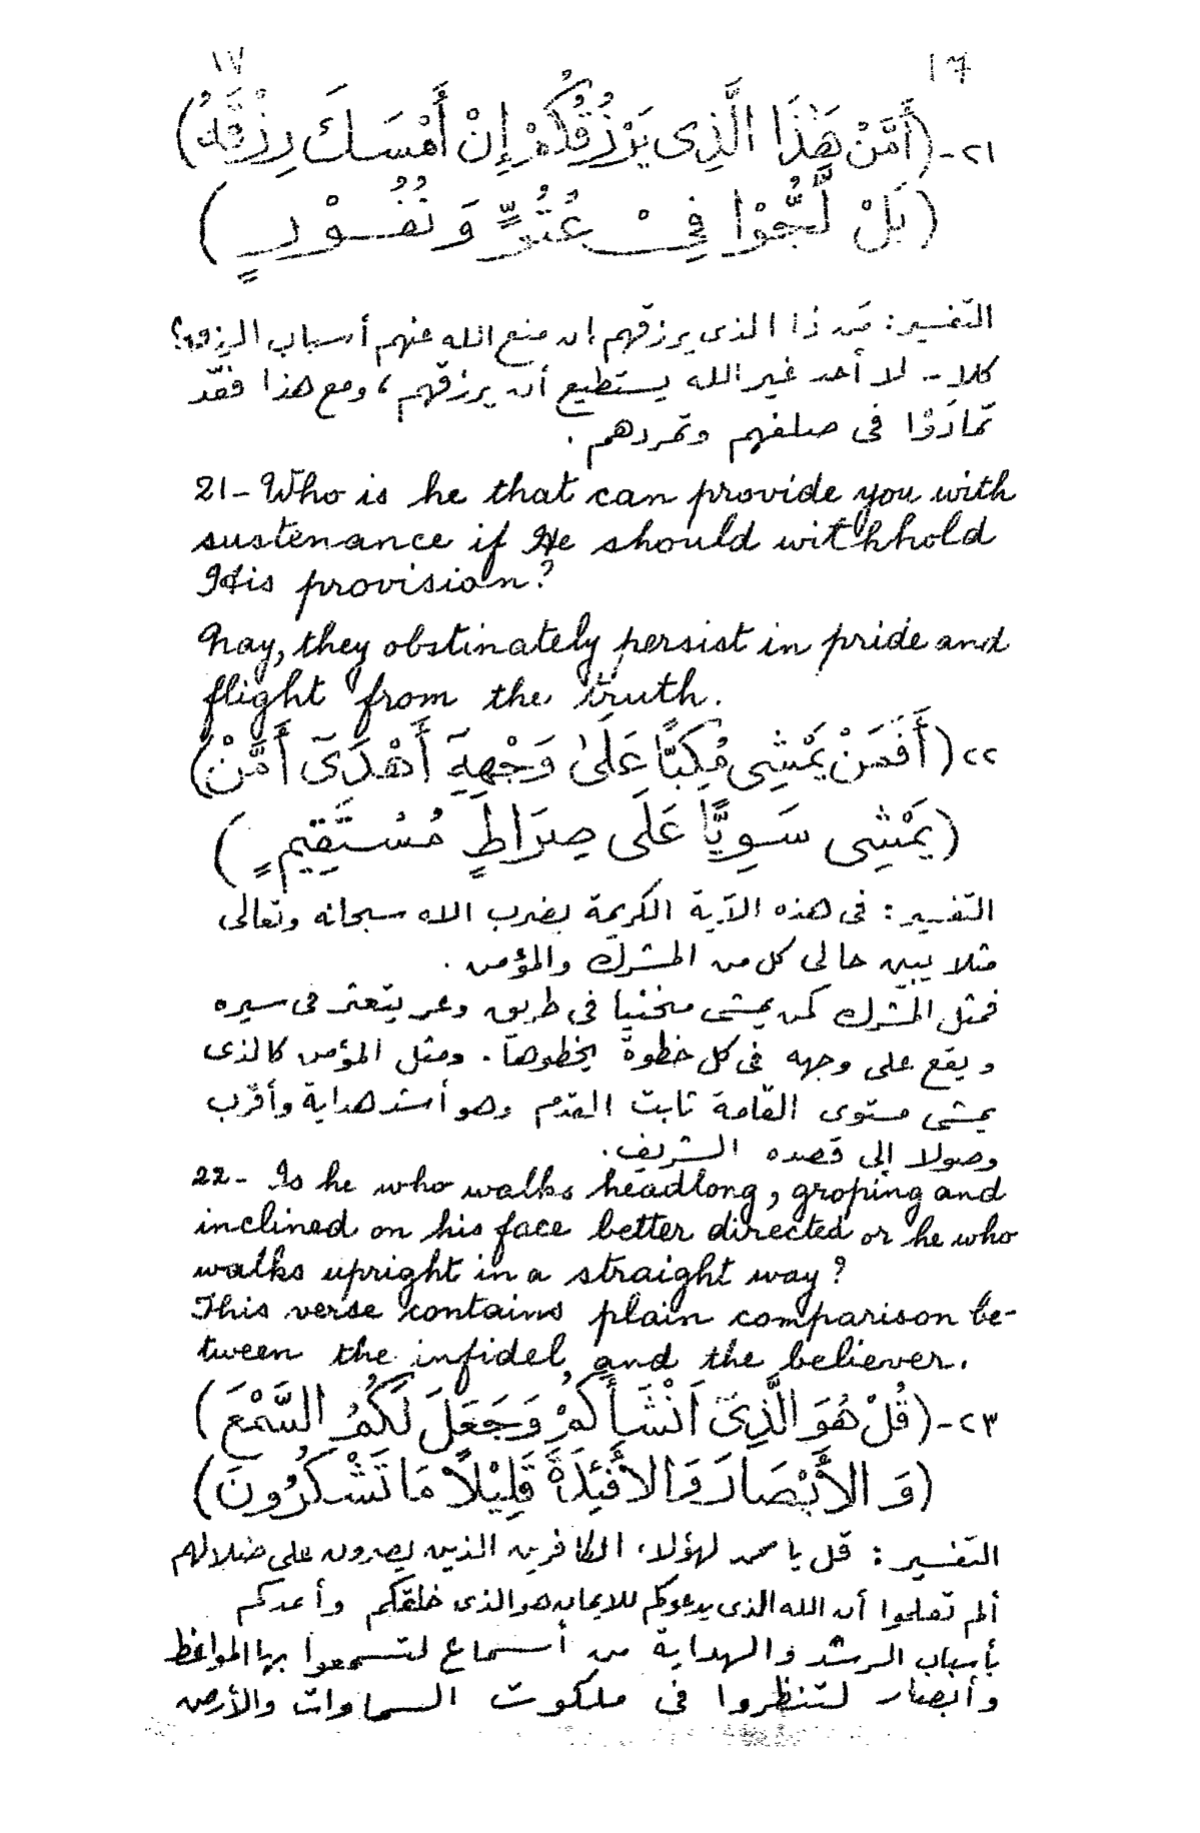 ١٧ 17
٢١- (أَمَّنْ هَٰذَا الَّذِى يَرْزُقُكُمْ إِنْ أَمْسَكَ رِزْقَهُ)
(بَلْ لَّجُّوْا فِىْ عُتُوٍّ وَنُفُوْرٍ)
التفسير: مَن ذا الذى يرزقهم ان منع الله عنهم أسباب الرزق؟
كلا - لا أحد غير الله يستطيع أن يرزقهم، ومع هذا فقد
تمادَوْا فى صلفهم وتمردهم.
21- Who is he that can provide you with
sustenance if He should withhold
His provision?
Nay, they obstinately persist in pride and
flight from the truth.
٢٢ (أَفَمَنْ يَمْشِى مُكِبًّا عَلَىٰ وَجْهِهِٓ أَهْدَىٓ أَمَّنْ)
(يَمْشِى سَوِيًّا عَلَى صِرَاطٍ مُسْتَقِيمٍ)
التفسير: فى هذه الآية الكريمة يضرب الله سبحانه وتعالى
مثلا يبين حالى كل من المشرك والمؤمن.
فمثل المشرك كمن يمشى منحنيا فى طريق وعر يتعثر فى سيره
ويقع على وجهه فى كل خطوة يخطوها. ومثل المؤمن كالذى
يمشى مستوى القامة ثابت القدم وهو أشد هداية وأقرب
وصولا إلى قصده الشريف.
22- Is he who walks headlong, groping and
inclined on his face better directed or he who
walks upright in a straight way?
This verse contains plain comparison be-
tween the infidel and the believer.
٢٣- (قُلْ هُوَ الَّذِىٓ اَنْشَأَكُمْ وَجَعَلَ لَكُمُ السَّمْعَ)
(وَالأَبْصَارَ وَالأَفْئِدَةَ قَلِيْلًا مَا تَشْكُرُونَ)
التفسير: قل يا محمد لهؤلاء الكافرين الذين يصرون على ضلالهم
ألم تعلموا أن الله الذى يدعوكم للايمان هو الذى خلقكم وأمدكم
بأسباب الرشد والهداية من أسماع لتسمعوا بها المواعظ
وأبصار لتنظروا فى ملكوت السماوات والأرض